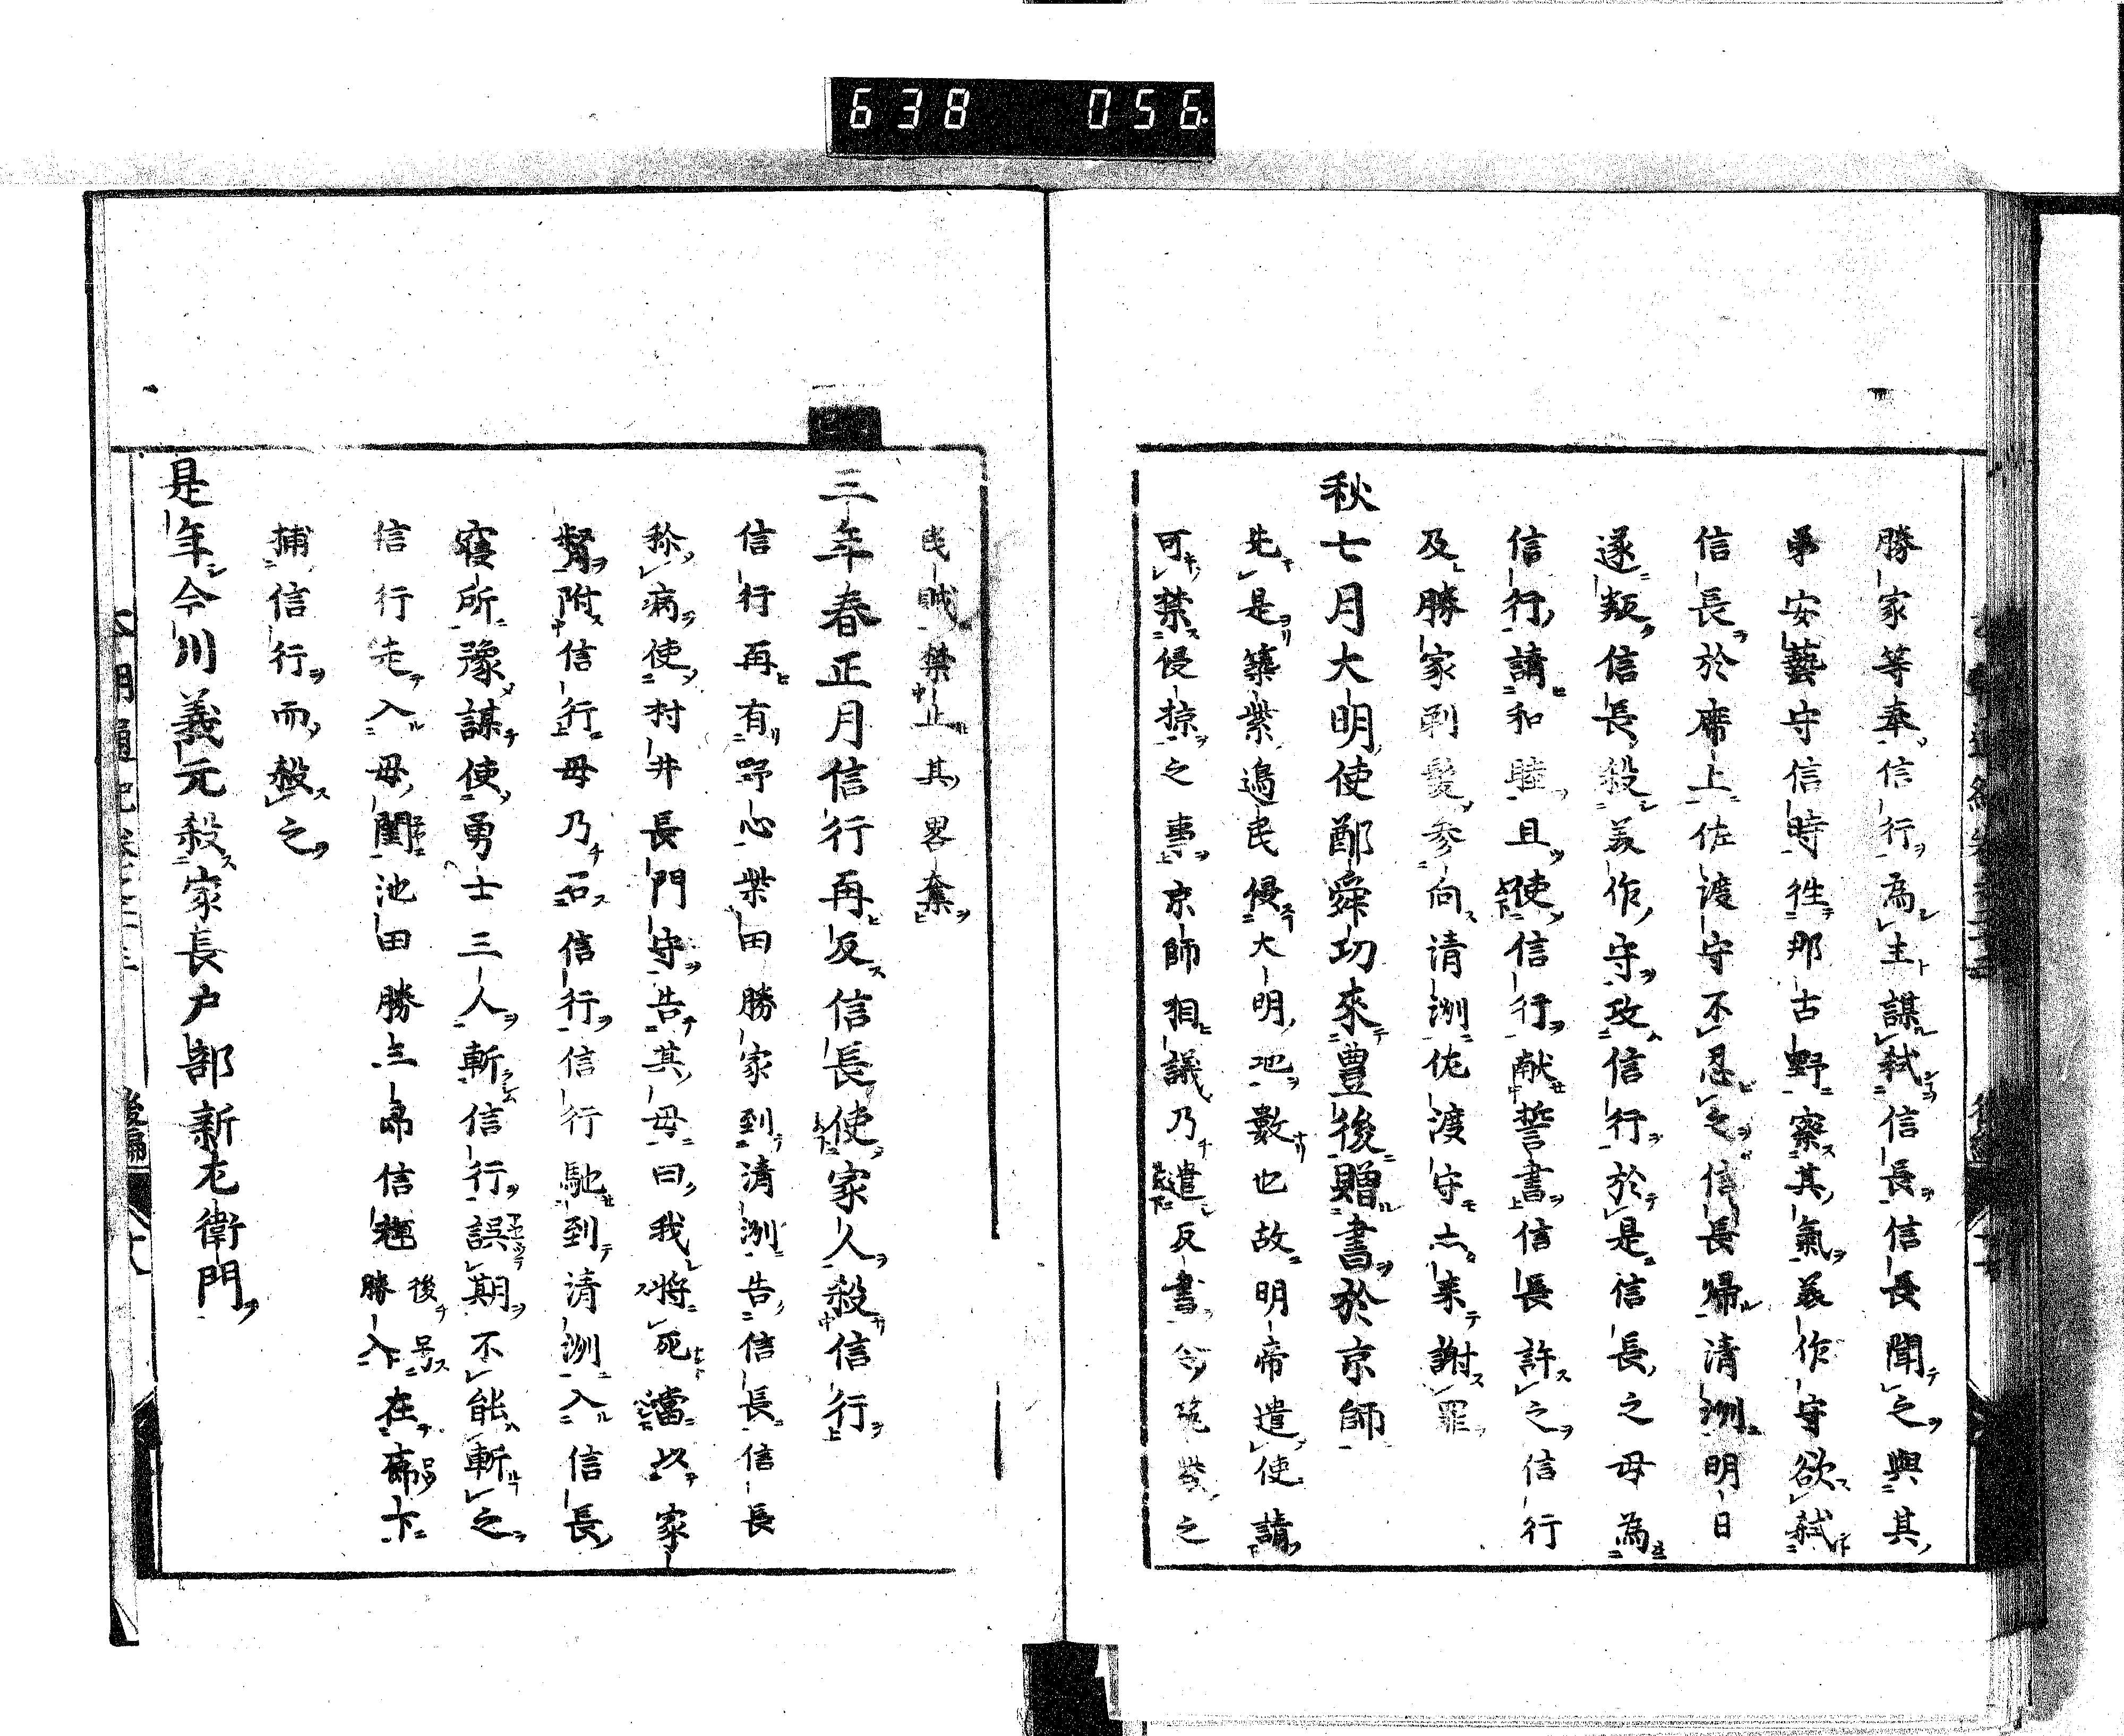 638 056
勝家等奉信行為主謀弑信長信長聞之與其
弟安藝守信時徃那古野察其氣美作守欲弑
信長於席上佐渡守不忍之信長歸清洲明日
遂叛信長殺美作守攻信行於是信長之母為
信行請和睦且使信行献誓書信長許之信行
及勝家剃髮参向清洲佐渡守亦来謝罪
秋七月大明使鄭舜功來豊後贈書於京師
先是築紫邉民侵大明地數也故明帝遣使請
可禁侵掠之事京師相議乃遣反書令筑紫之
民賊禁止其畧奪
三年春正月信行再反信長使家人殺信行
信行再有野心柴田勝家到清洲告信長信長
称病使村井長門守告其母曰我將死當以家
督附信行母乃召信行信行馳到清洲入信長
寢所豫謀使勇士三人斬信行誤期不能斬之
信行走入母閨池田勝三郎信輝後号勝入在廊下
捕信行而殺之
是年今川義元殺家長戸部新左衛門